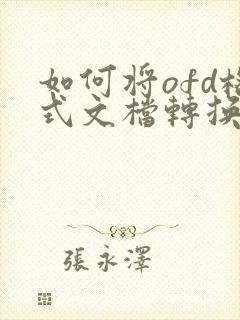 如何将ofd格
式文檔轉換
張永澤